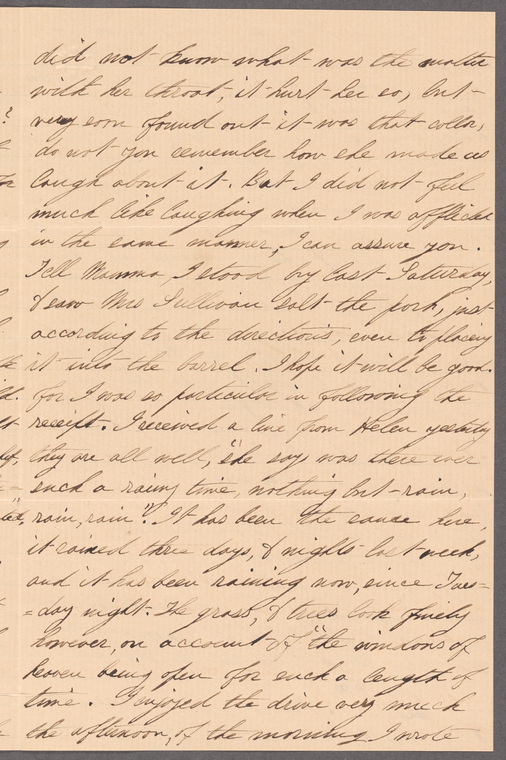 did not know what was the matter
with her throat, it hurt her so, but
very soon found out it was that collar,
do not you remember how she made us
laugh about it. But I did not feel
much like laughing when I was afflicted
in the same manner, I can assure you.
Tell Mamma, I stood by last Saturday,
& saw Mrs Sullivan salt the pork, just
according to the directions, even to placing
it into the barrel. I hope it will be good.
for I was so particular in following the
receipt. I received a line from Helen yesterday
they are all well, she says "was there ever
such a rainy time, nothing but rain,
rain, rain"? It has been the same here,
it rained three days, & nights last week,
and it has been raining now, since Tues-
=day night. The grass, & trees look finely
however, on account of "the windows of
heaven being open for such a length of
time. I enjoyed the drive very much
the afternoon, of the morning I wrote